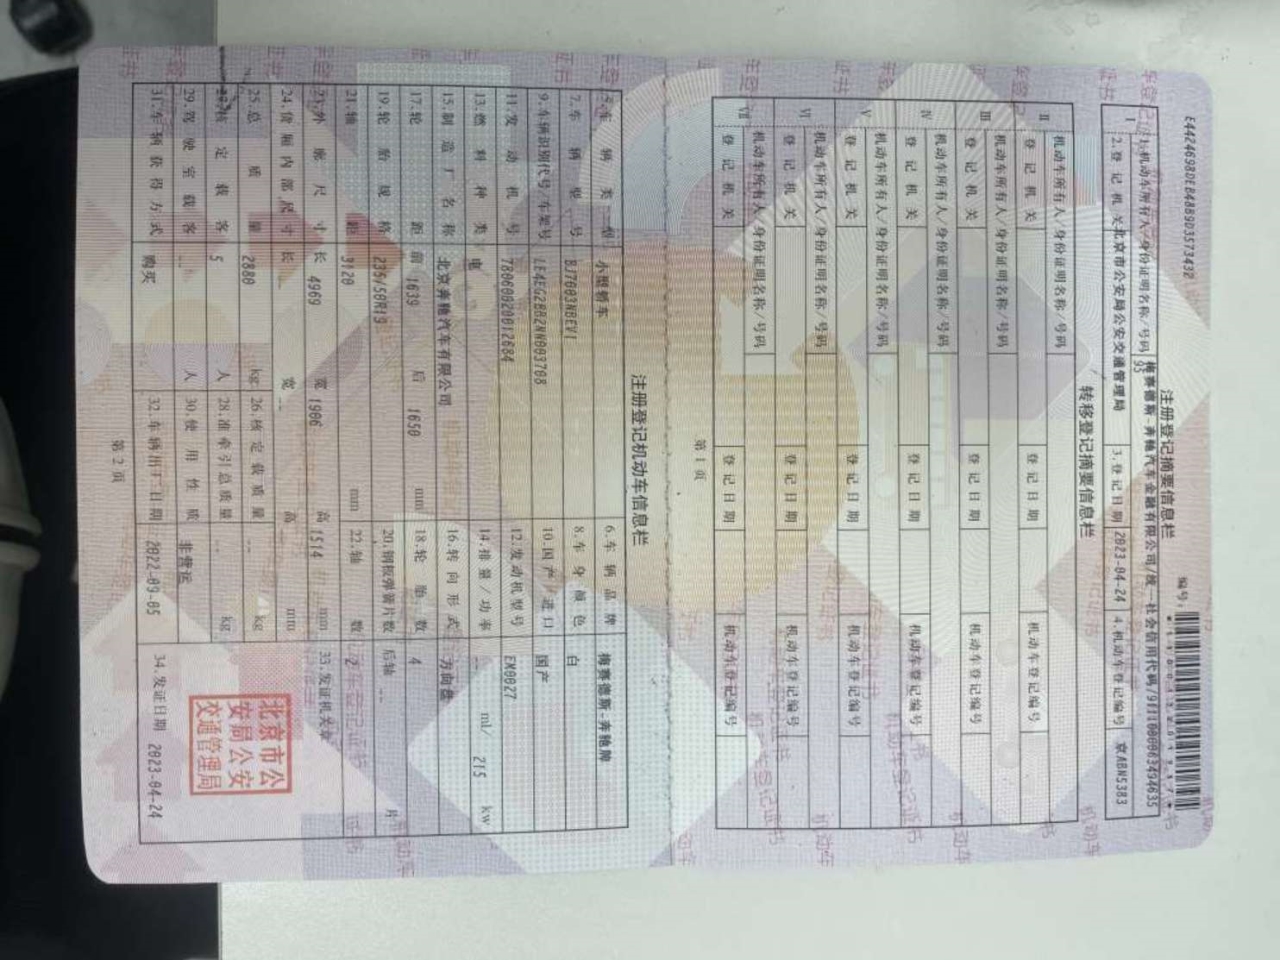 注册登记摘要信息栏
编号:
E44246980EB48B9D3573432
Ⅰ 1.机动车所有人/身份证明名称/号码 梅赛德斯-奔驰汽车金融有限公司/统一社会信用代码/9111000006349463593
2.登记机关 北京市公安局公安交通管理局 3.登记日期 2023-04-24 4.机动车登记编号 京ABN5383
转移登记摘要信息栏
Ⅱ 机动车所有人/身份证明名称/号码
登记机关 登记日期 机动车登记编号
Ⅲ 机动车所有人/身份证明名称/号码
登记机关 登记日期 机动车登记编号
Ⅳ 机动车所有人/身份证明名称/号码
登记机关 登记日期 机动车登记编号
Ⅴ 机动车所有人/身份证明名称/号码
登记机关 登记日期 机动车登记编号
Ⅵ 机动车所有人/身份证明名称/号码
登记机关 登记日期 机动车登记编号
Ⅶ 机动车所有人/身份证明名称/号码
登记机关 登记日期 机动车登记编号
第1页
注册登记机动车信息栏
5.车辆类型 小型轿车 6.车辆品牌 梅赛德斯-奔驰牌
7.车辆型号 BJ7003NBEV1 8.车身颜色 白
9.车辆识别代号/车架号 LE4EG2BB2NN003708 10.国产/进口 国产
11.发动机号 78060020012684 12.发动机型号 EM0027
13.燃料种类 电 14.排量/功率 -- ml/ 215 kw
15.制造厂名称 北京奔驰汽车有限公司 16.转向形式 方向盘
17.轮距 前 1639 后 1650 mm 18.轮胎数 4
19.轮胎规格 235/50R19 20.钢板弹簧片数 后轴 -- 片
21.轴距 3120 mm 22.轴数 2
23.外廓尺寸 长 4969 宽 1906 高 1514 mm 33.发证机关章
24.货厢内部尺寸 长 -- 宽 -- 高 -- mm
25.总质量 2880 kg 26.核定载质量 -- kg
27.核定载客 5 人 28.准牵引总质量 -- kg
29.驾驶室载客 -- 人 30.使用性质 非营运
31.车辆获得方式 购买 32.车辆出厂日期 2022-09-05 34.发证日期 2023-04-24
北京市公
安局公安
交通管理局
第2页